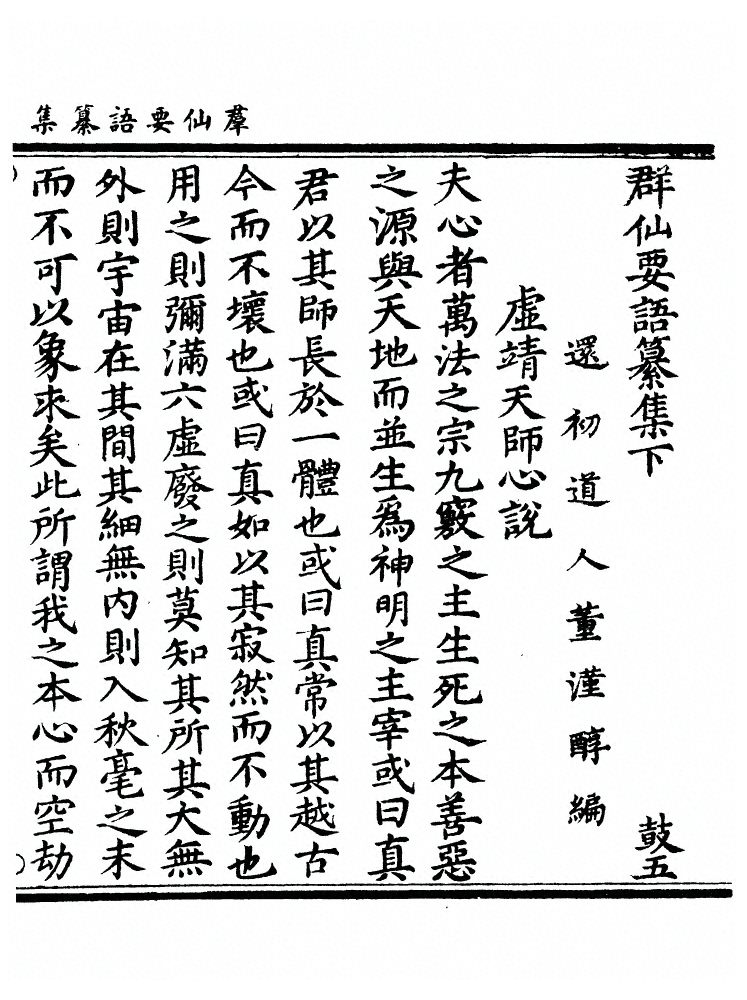 羣仙要語纂集
群仙要語纂集下
鼓五
還初道人董漌醇編
虛靖天師心說
夫心者萬法之宗九竅之主生死之本善惡
之源與天地而並生爲神明之主宰或曰真
君以其師長於一體也或曰真常以其越古
今而不壞也或曰真如以其寂然而不動也
用之則彌滿六虛廢之則莫知其所其大無
外則宇宙在其間其細無内則入秋毫之末
而不可以象求矣此所謂我之本心而空劫